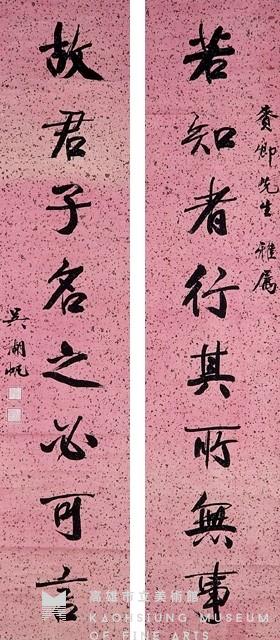 卿先生雅屬
若知者行其所無事
故君子名之必可言
吳帆
高雄市立美術館
KAOHSIUNG MUSEUM
OF FINE ARTS